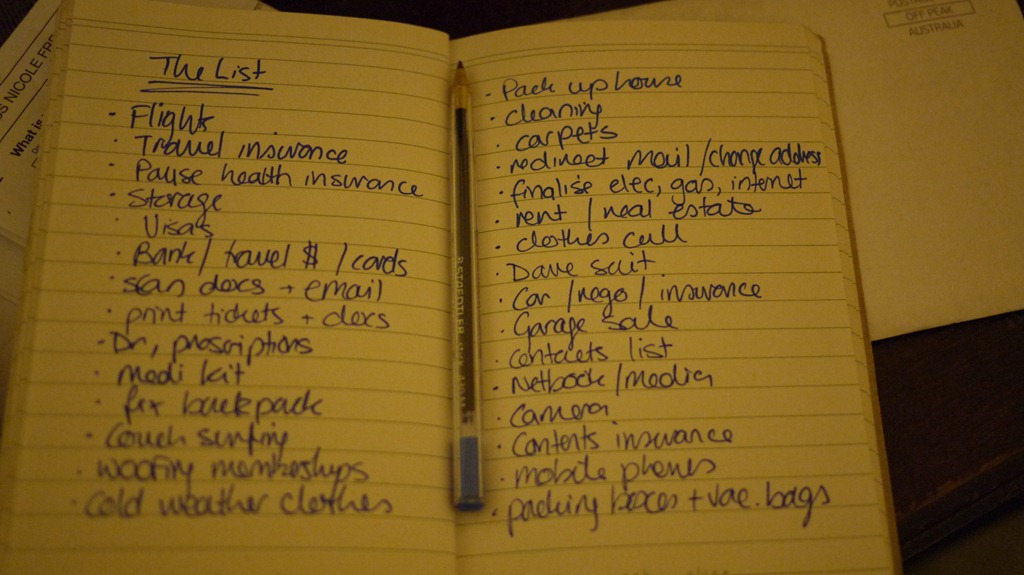 The List
· Flights
Travel insurance
Pause health insurance
· Storage
Visas
· Bank / travel $ / cards
· scan docs + email
· print tickets + docs
· Dr, prescriptions
· Medi kit
· fix backpack
· Couch surfing
· woofing memberships
· cold weather clothes
· Pack up house
· cleaning
· carpets
· redirect mail / change address
· finalise elec, gas, internet
· rent / real estate
· clothes cull
· Dave suit.
· Car / rego / insurance
· Garage sale
· contacts list
· Netbook / media
· camera
· Contents insurance
· mobile phones
· packing boxes + vac. bags
STAEDTLER
S NICOLE FR
What is
OFF PEAK
AUSTRALIA